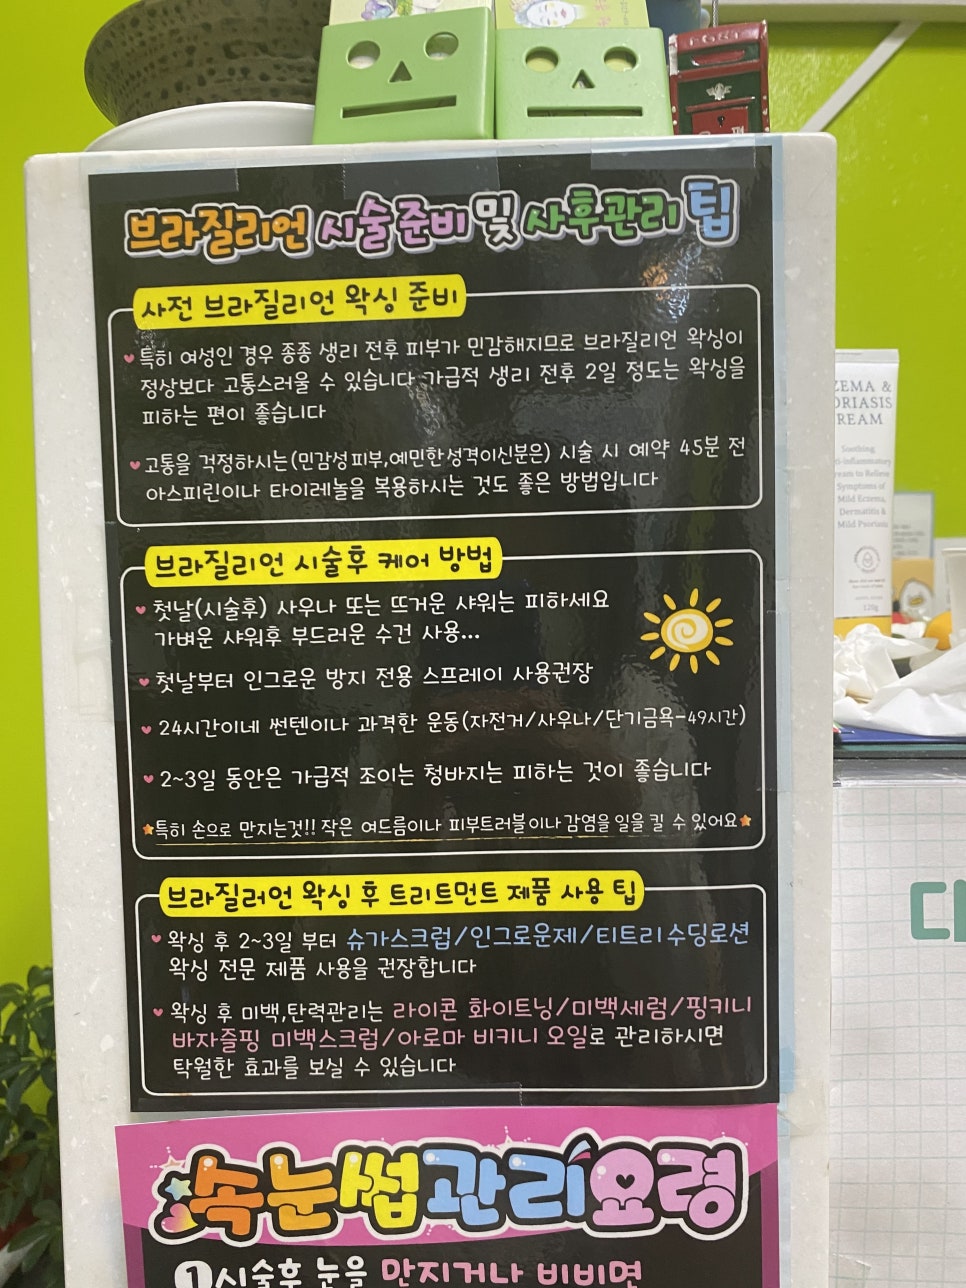 브라질리언 시술준비 및 사후관리 팁
사전 브라질리언 왁싱 준비
특히 여성인 경우 종종 생리 전후 피부가 민감해지므로 브라질리언 왁싱이
정상보다 고통스러울 수 있습니다 가급적 생리 전후 2일 정도는 왁싱을
피하는 편이 좋습니다
고통을 걱정하시는(민감성피부,예민한성격이신분은) 시술 시 예약 45분 전
아스피린이나 타이레놀을 복용하시는 것도 좋은 방법입니다
브라질리언 시술후 케어 방법
첫날(시술후) 사우나 또는 뜨거운 샤워는 피하세요
가벼운 샤워후 부드러운 수건 사용...
첫날부터 인그로운 방지 전용 스프레이 사용권장
24시간이네 썬텐이나 과격한 운동(자전거/사우나/단기금욕-49시간)
2~3일 동안은 가급적 조이는 청바지는 피하는 것이 좋습니다
특히 손으로 만지는것!! 작은 여드름이나 피부트러블이나감염을 일을 킬 수 있어요
브라질러언 왁싱 후 트리트먼트 제품 사용 팁
왁싱 후 2~3일 부터 슈가스크럽/인그로운제/티트리수딩로션
왁싱 전문 제품 사용을 권장합니다
왁싱 후 미백,탄력관리는 라이콘 화이트닝/미백세럼/핑키니
바자즐핑 미백스크럽/아로마 비키니 오일로 관리하시면
탁월한 효과를 보실 수 있습니다
속눈썹관리요령
1 시술후 눈을 만지거나 비비면
ZEMA &
ORIASIS
REAM
Soothing
ti-inflammatory
ream to Relieve
Symptoms of
Mild Eczema,
Dermatitis &
Mild Psoriasis
120g